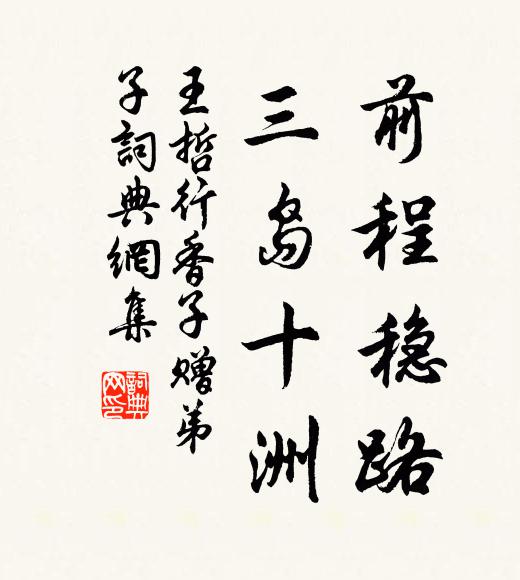 前程稳路
三岛十洲
王哲行香子赠弟
子詞典網集
詞典
网印